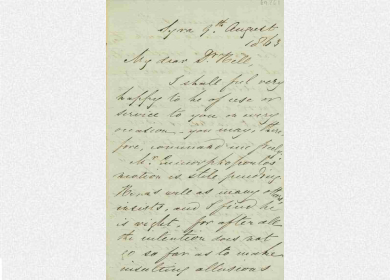 Syra 9th August
1863
My dear Dr. Hill,
I shall feel very
happy to be of use or
service to you in every
occasion - you may, there
fore, command me
Mr.
motion is still pending
as well as many others
and I find he
is right, for after all
the intention does not
go so far as to make
insulting allusions